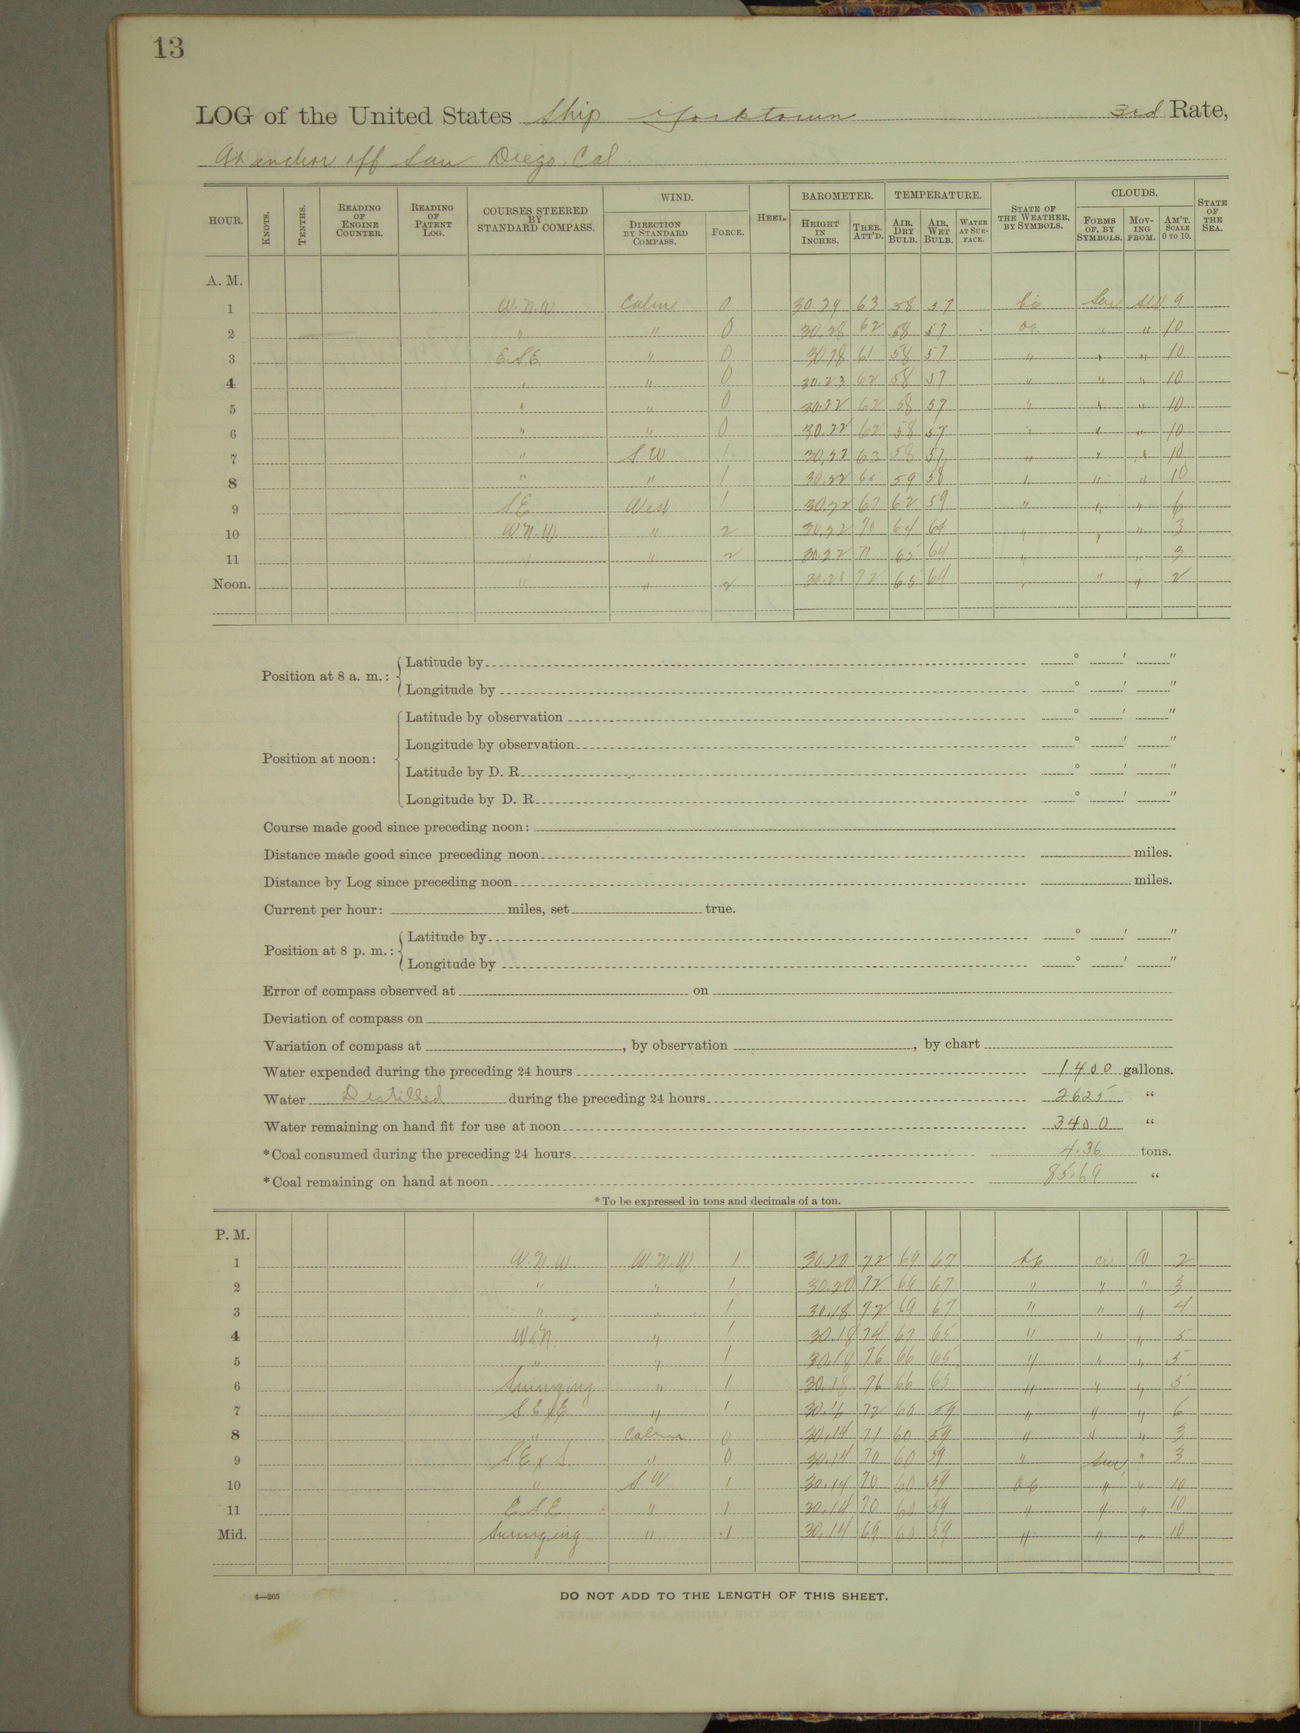 13
LOG of the United States Ship Yorktown 3rd Rate,
At anchor off San Diego, Cal.
HOUR. KNOTS. TENTHS. READING OF ENGINE COUNTER. READING OF PATENT LOG. COURSES STEERED BY STANDARD COMPASS. WIND. DIRECTION BY STANDARD COMPASS. FORCE. HEEL. BAROMETER. HEIGHT IN INCHES. THER. ATT'D. TEMPERATURE. AIR, DRY BULB. AIR, WET BULB. WATER AT SURFACE. STATE OF THE WEATHER, BY SYMBOLS. CLOUDS. FORMS OF, BY SYMBOLS. MOVING FROM. AM'T. SCALE 0 TO 10. STATE OF THE SEA.
A. M.
1 W.N.W. Calm 0 30.29 63 58 57 9
2 " " 0 30.28 62 58 57 " " 10
3 E.S.E. " 0 30.28 61 58 57 " " " 10
4 " " 0 30.23 62 58 57 " " " 10
5 " " 0 30.22 62 58 57 " " " 10
6 " " 0 30.22 62 58 57 " " " 10
7 " S W 1 30.22 63 58 57 " " " 10
8 " " 1 30.22 65 59 58 " " " 10
9 S E West 1 30.22 67 62 59 " " " 6
10 W.N.W. " 2 30.22 70 64 " " " 3
11 " " 2 30.22 71 65 64 " " " 3
Noon. " " 2 72 65 64 " " " 2
Position at 8 a. m.: Latitude by ° ' "
Longitude by ° ' "
Position at noon: Latitude by observation ° ' "
Longitude by observation ° ' "
Latitude by D. R. ° ' "
Longitude by D. R. ° ' "
Course made good since preceding noon:
Distance made good since preceding noon miles.
Distance by Log since preceding noon miles.
Current per hour: miles, set true.
Position at 8 p. m.: Latitude by ° ' "
Longitude by ° ' "
Error of compass observed at on
Deviation of compass on
Variation of compass at , by observation , by chart
Water expended during the preceding 24 hours 1400 gallons.
Water Distilled during the preceding 24 hours 2625 "
Water remaining on hand fit for use at noon 3400 "
*Coal consumed during the preceding 24 hours 4.36 tons.
*Coal remaining on hand at noon 85.69 "
*To be expressed in tons and decimals of a ton.
P. M.
1 W.N.W. W.N.W 1 30.20 72 69 67 bc W 2
2 " " 1 30.20 72 69 67 " " " 3
3 " " 1 30.18 72 69 67 " " " 4
4 WxN. " 1 30.18 74 67 65 " " " 5
5 " " 1 30.18 76 66 65 " " " 5
6 Swinging " 1 30.18 76 66 65 " " " 5
7 S E x E " 1 30.16 72 60 59 " " " 6
8 " Calm 0 30.14 71 60 59 " " " 3
9 S.E x S " 0 30.14 70 60 59 " " 3
10 " S W 1 30.14 70 60 59 " " 10
11 E S E " 1 30.14 70 60 59 " " " 10
Mid. Swinging " 1 30.14 69 60 59 " " " 10
4—205
DO NOT ADD TO THE LENGTH OF THIS SHEET.